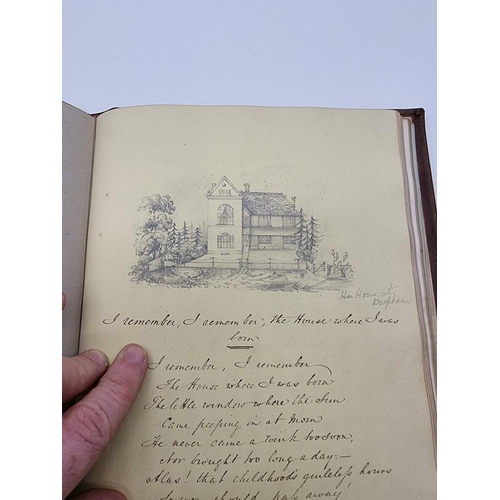 Her Home at
I remember, I remember, the House where I was
born
I remember, I remember
The House where I was born
The little window where the Sun
Came peeping in at Morn
He never came a wink too soon,
Nor brought too long a day:-
Alas! that childhood's guileless hours
should pass away